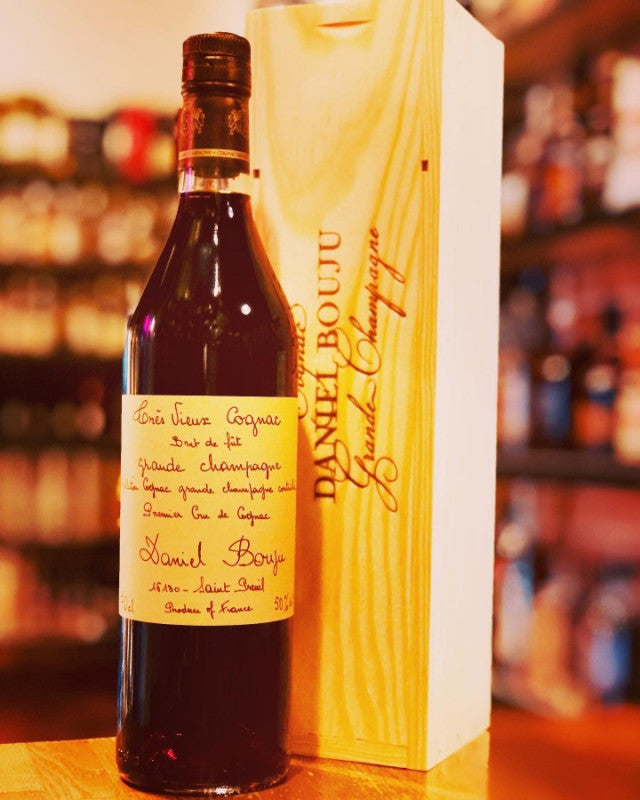 Très Vieux Cognac
Brut de fût
grande champagne
Cognac grande champagne
Premier Cru de Cognac
Daniel Bouju
16130 - Saint Preuil
Produce of France
50%
Cognac
DANIEL BOUJU
Grande Champagne